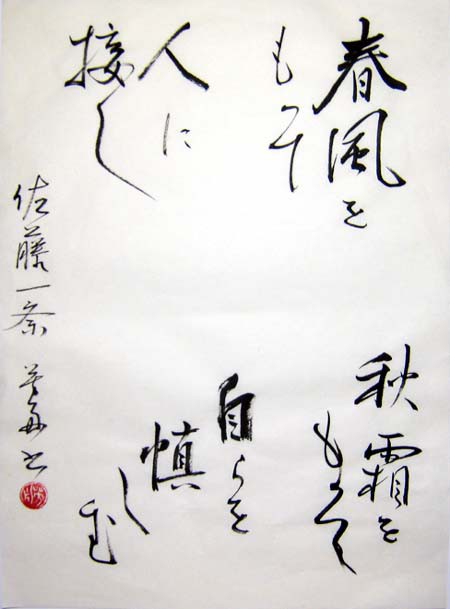 春風を
もって
人に
接し
秋霜を
もって
自らを
慎
しむ
佐藤一斎